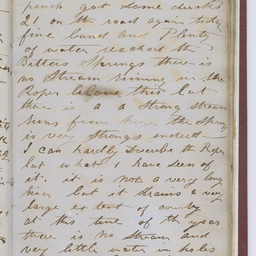 perch got some ducks
21 on the road again today
fine land and Plenty
of water reached the
Bitters Springs there is
no Stream runing in the
Roper above this but
there is a a Strong Stream
runs from here the Spring
is very Strong indeed
I can hardly Describe the Roper
but what I have seen of
it. it is not a very long
river but it drains a very
large extent of country
at this time of the year
there is no Stream and
very little water in holes